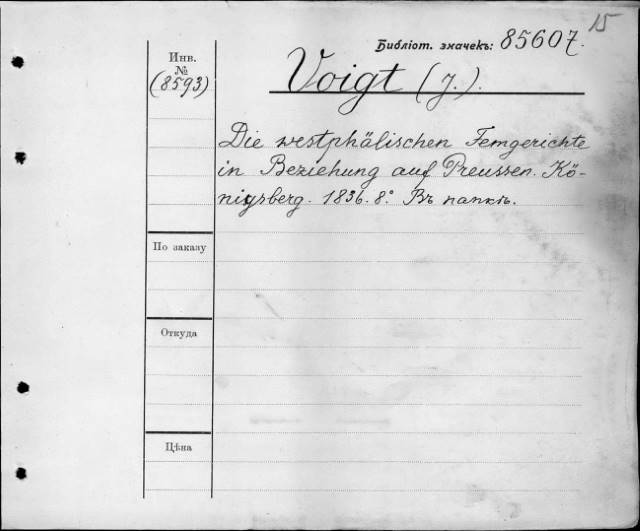 15
Библіот. значекъ: 85607.
Инв.
№
(8593)
Voigt (J.).
Die westphälischen Femgerichte
in Beziehung auf Preussen. Kö-
nigsberg. 1836. 8.° Въ папкѣ.
По заказу
Откуда
Цѣна